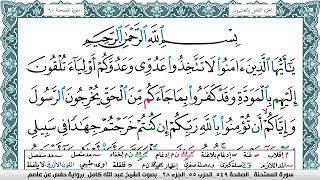 الجزء الثامن والعشرون
سورة الممتحنة ٦٠
بِسْمِ ٱللَّهِ ٱلرَّحْمَٰنِ ٱلرَّحِيمِ
يَٰٓأَيُّهَا ٱلَّذِينَ ءَامَنُوا۟ لَا تَتَّخِذُوا۟ عَدُوِّى وَعَدُوَّكُمْ أَوْلِيَآءَ تُلْقُونَ
إِلَيْهِم بِٱلْمَوَدَّةِ وَقَدْ كَفَرُوا۟ بِمَا جَآءَكُم مِّنَ ٱلْحَقِّ يُخْرِجُونَ ٱلرَّسُولَ
وَإِيَّاكُمْ أَن تُؤْمِنُوا۟ بِٱللَّهِ رَبِّكُمْ إِن كُنتُمْ خَرَجْتُمْ جِهَٰدًا فِى سَبِيلِى
سورة الممتحنة - الصفحة ٥٤٩ - الحزب ٥٥ - الجزء ٢٨ - بصوت الشيخ عبد الله كامل - برواية حفص عن عاصم